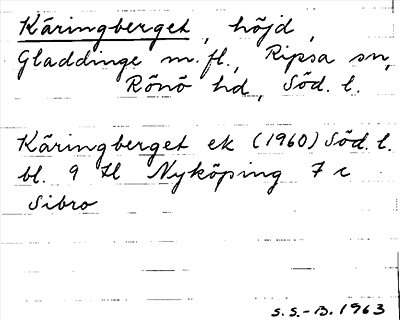 Käringberget, höjd,
Gladdinge m.fl., Ripsa sn,
Rönö hd, Söd. l.
Käringberget ek (1960) Söd. l.
bl. 9 H Nyköping 7 c
Sibro
S.S.-B. 1963